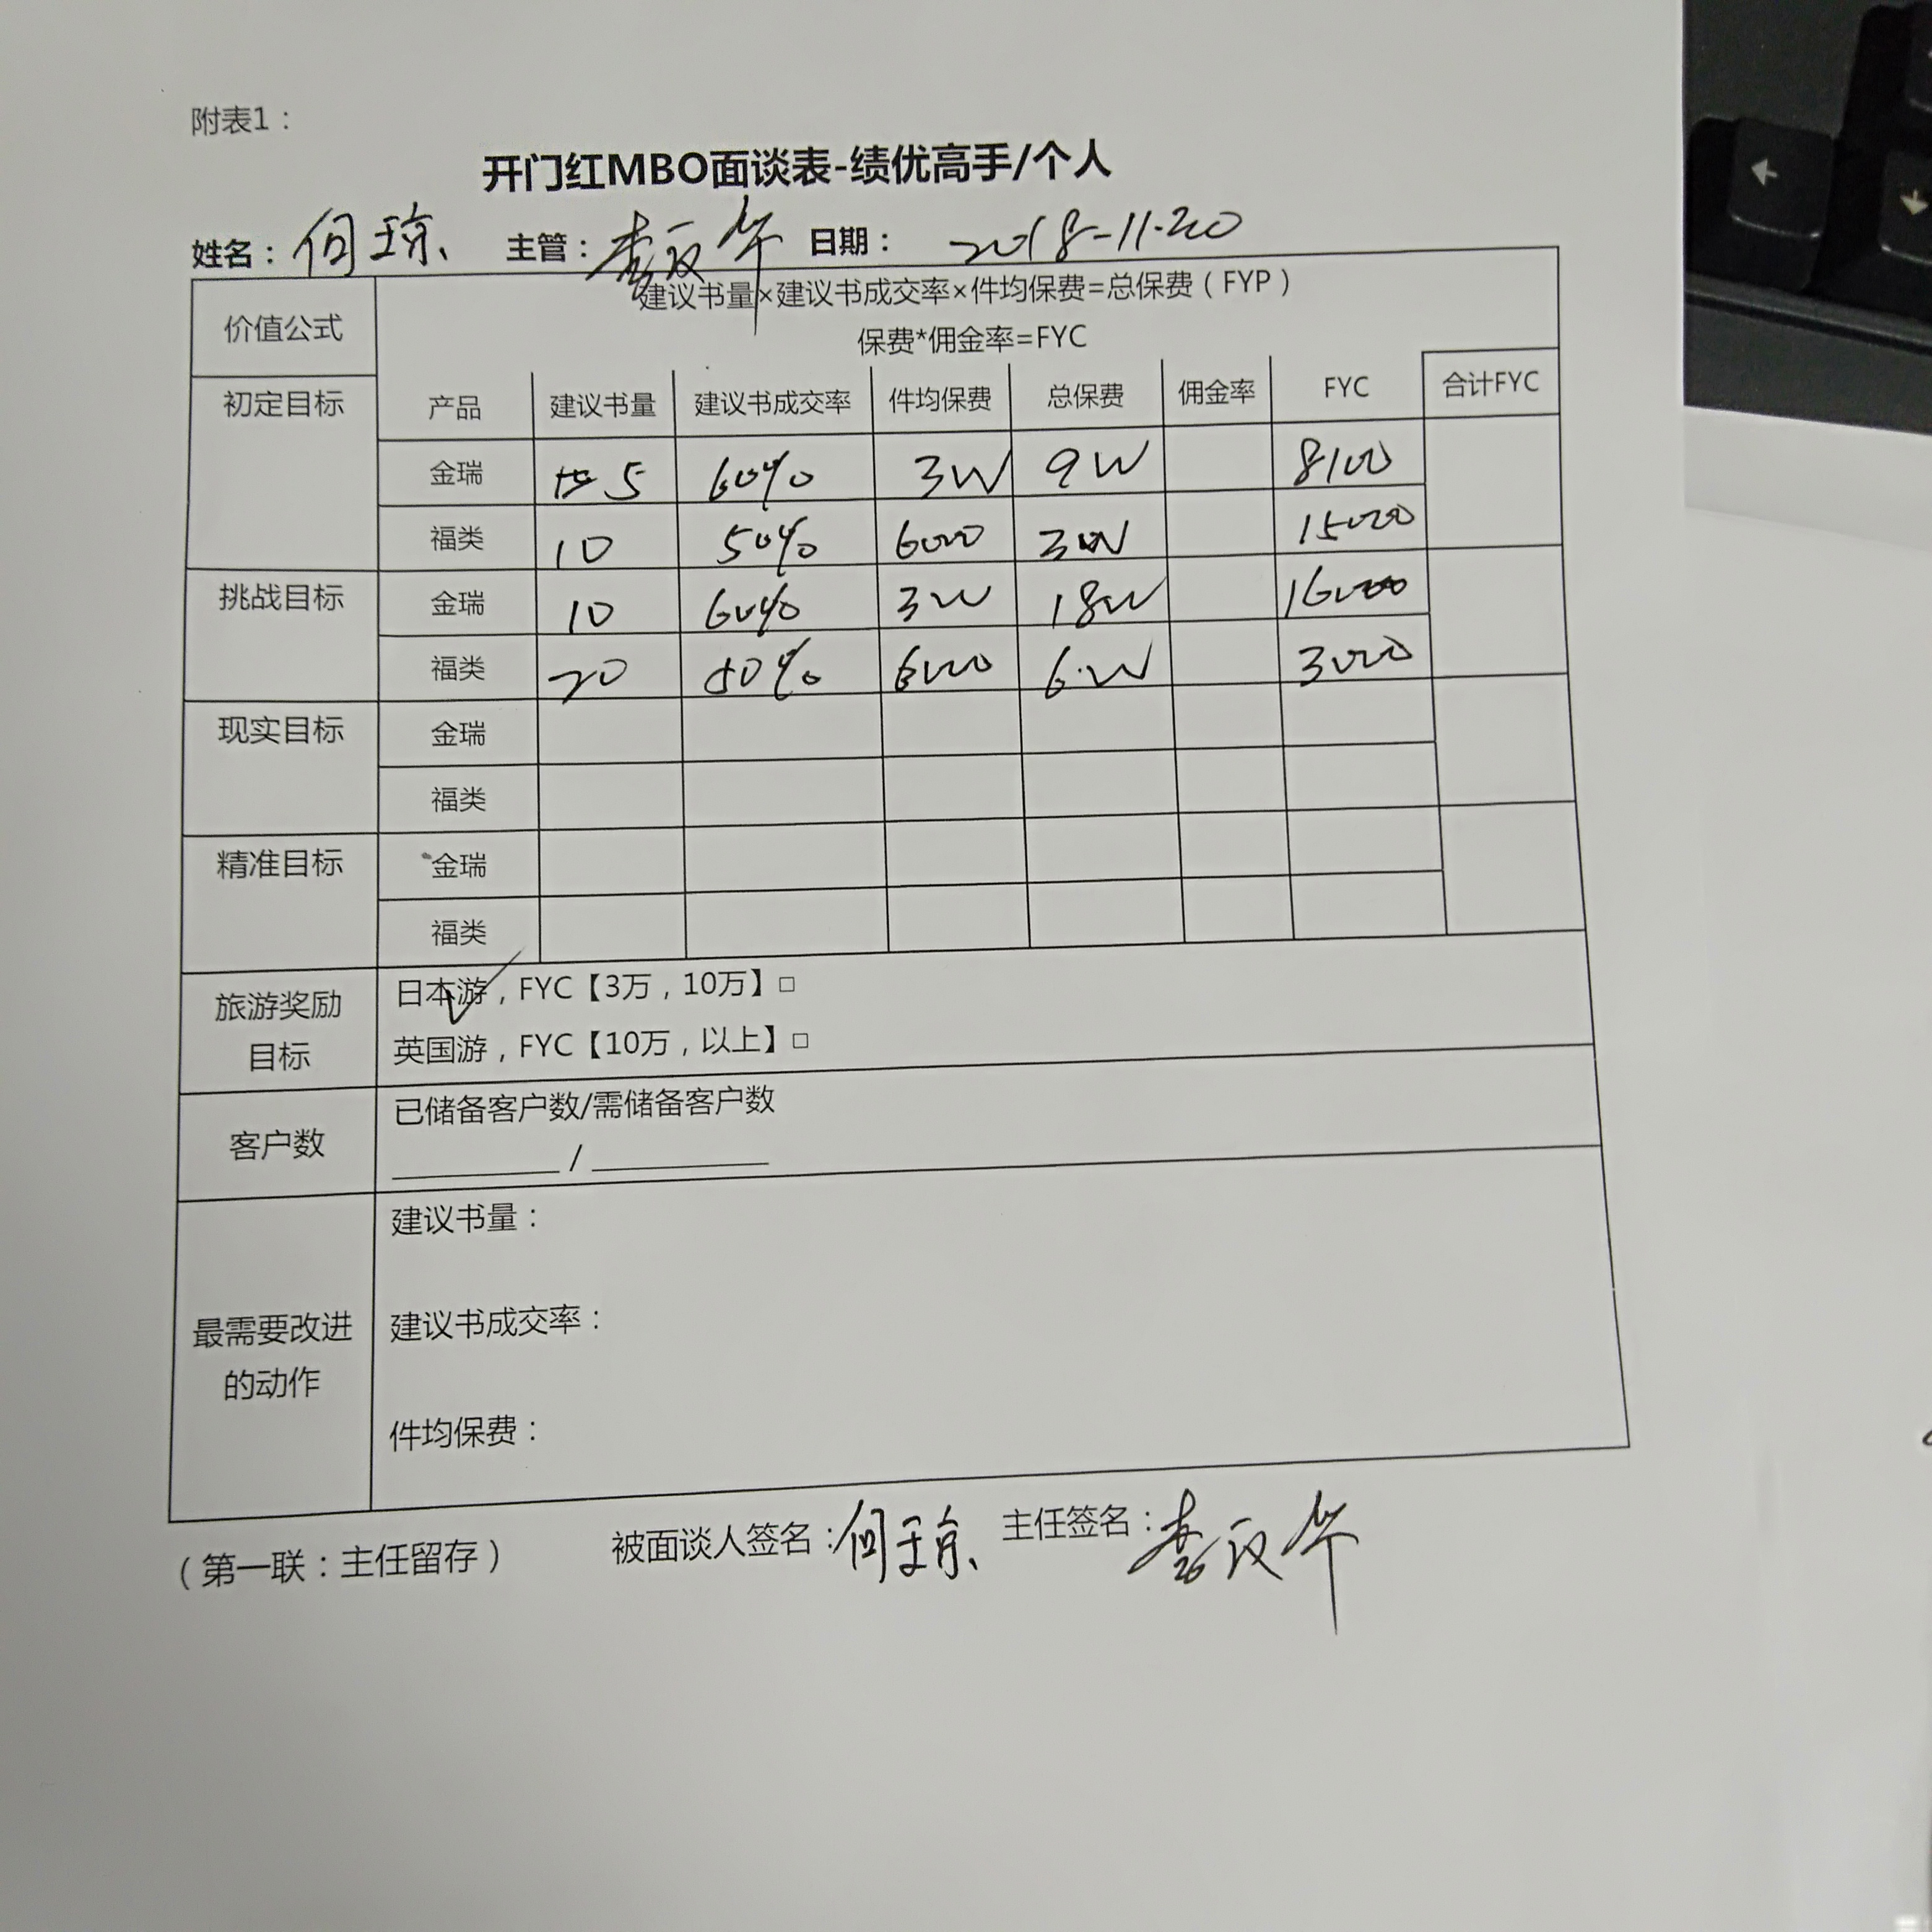 附表1：
开门红MBO面谈表-绩优高手/个人
姓名：何琼 主管： 日期： 2018-11.20
价值公式 建议书量×建议书成交率×件均保费=总保费（FYP）
保费*佣金率=FYC
初定目标 产品 建议书量 建议书成交率 件均保费 总保费 佣金率 FYC 合计FYC
金瑞 5 60% 3W 9W 8100
福类 10 50% 6000 3W 15000
挑战目标 金瑞 10 60% 3W 18W
福类 20 50% 6000 6W
现实目标 金瑞
福类
精准目标 金瑞
福类
旅游奖励目标 日本游，FYC【3万，10万】□
英国游，FYC【10万，以上】□
客户数 已储备客户数/需储备客户数
/
最需要改进的动作 建议书量：
建议书成交率：
件均保费：
（第一联：主任留存） 被面谈人签名：何琼 主任签名：